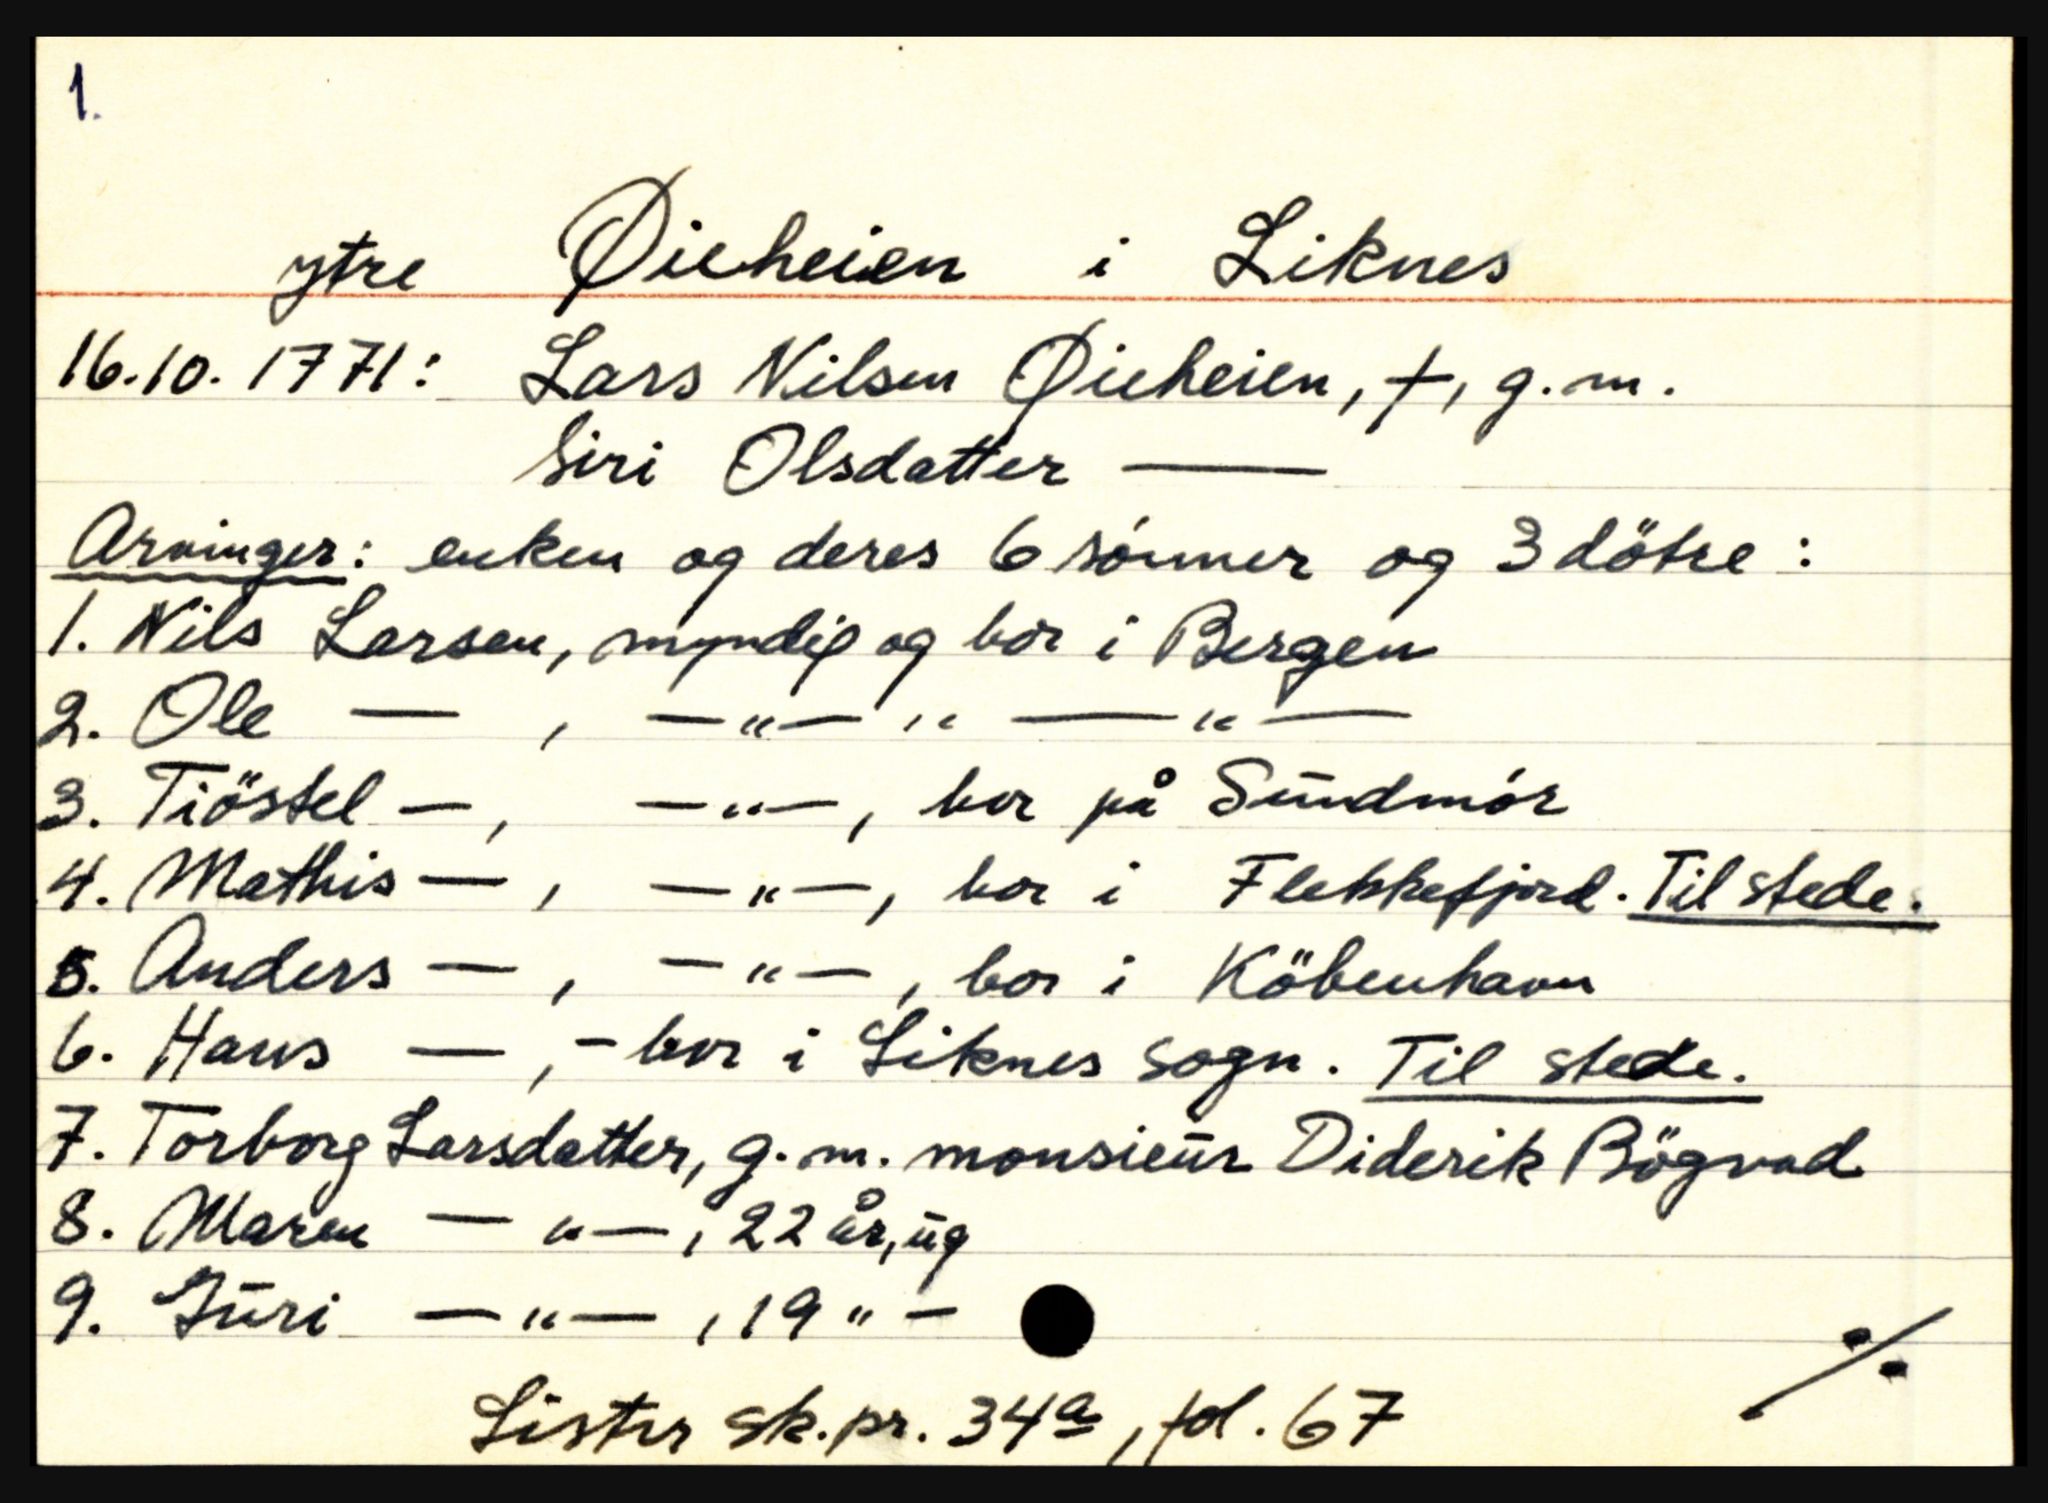 1.
ytre Øieheien i Liknes
16.10.1771: Lars Nilsen Øieheien, †, g.m.
Siri Olsdatter —
Arvinger: enken og deres 6 sónner og 3 dötre:
1. Nils Larsen, myndig og bor i Bergen
2. Ole — , —"— " —"—
3. Tiöstel —, —"—, bor på Sūndmór
4. Mathis — , —"—, bor i Flekkefjord. Til stede.
5. Anders — , —"— , bor i Köbenhavn
6. Hans — ,- bor i Liknes sogn. Til stede.
7. Torborg Larsdatter, g.m. monsieūr Diderik Bögvad
8. Maren —"—, 22 år, ūg
9. Gūri —"— , 19 " —
Lister sk.pr. 34a, fol. 67
·/·